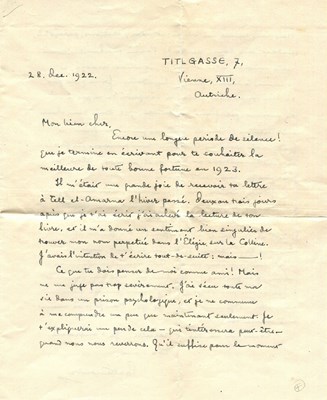 TITLGASSE, 7,
28. Dec. 1922.
Vienne, XIII,
Autriche.
Mon bien cher,
Encore une longue période de silence!
que je termine en écrivant pour te souhaiter la
meilleure de toute bonne fortune en 1923.
Il m'était une grande joie de recevoir ta lettre
à tell el-Amarna l'hiver passé. Deux ou trois jours
après que je t'ai écrit j'ai achevé la lecture de ton
livre, et il m'a donné un sentiment bien singulier de
trouver mon nom perpétué dans l'Élégie sur la Colline.
J'avais l'intention de t'écrire tout-de-suite; mais —!
Ce que tu dois penser de moi comme ami! Mais
ne me juge pas trop sévèrement. J'ai vécu toute ma
vie dans une prison psychologique, et je ne commence
à me comprendre un peu que maintenant seulement. Je
t'expliquerai un peu de cela — qui t'intéressera peut-être —
quand nous nous reverrons. Qu'il suffise pour le moment